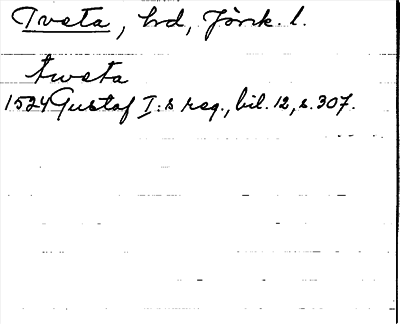 Tveta, hrd, Jönk. l.
tweta
1524 Gustaf I:s reg., bil. 12, s. 307.